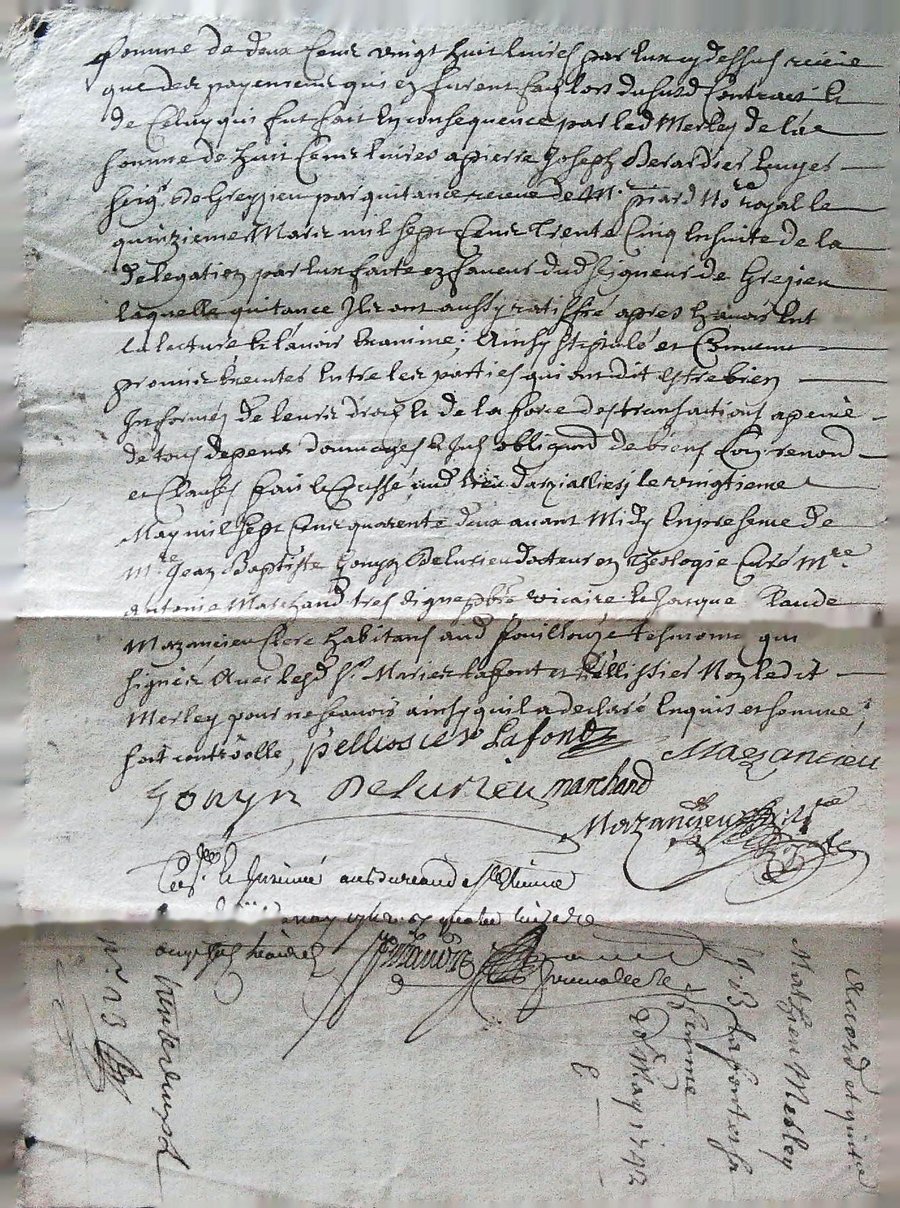 somme de deux cens vingt huit livres par luy cy dessus reçüe
que des payemens qui en furent faits lors dususd Contract &
de Celuy qui fut fait en consequence par led Merley de la
somme de huit cens livres a pierre Joseph Berardier Ecuyer
seig.r de Grezieu par quitance reçüe de M.e piard No.re royal le
quinzieme Mars mil sept Cens Trente Cinq Ensuite de la
delegation par luy faite en faveur dud seigneur de Grezieu
laquelle quitance Ils ont aussy ratiffié apres En avoir Eut
la lecture & l'avoir Examiné; Ainsy stipulé et Convenu
promis Entre les parties qui ont dit estre bien
Informés de leurs droits & de la force des transactions a peine
de tous depens dommages & Int obligaond de biens Soy. renond
et Clauses fait & Passé aud lieu le vingtieme
May mil sept Cens quarente deux avant Midy En presence de
M.re Jean Baptiste Gonyn Delurieu docteur en Theologie Curé M.re
Antoine Marchand tres digne pbre vicaire & Claude
Mazancieu Clerc habitans aud fouillouze tesmoins qui
signés Avec lesd s.rs Mariés Lafont et Pellissier Non ledit
Merley pour ne sçavoir ainsy quil a declaré Enquis et sommé;
soit controolle, pellissier Lafond Mazancieu
Gonyn Delurieu marchand
Mazancieu No.re
Con.lé & Insinué au bureau de S.t Etienne
may 1742
onze sols
N.o 23
Accord et quitce
Mathieu Merley
J. B. Lafont et sa
femme
20e May 1742